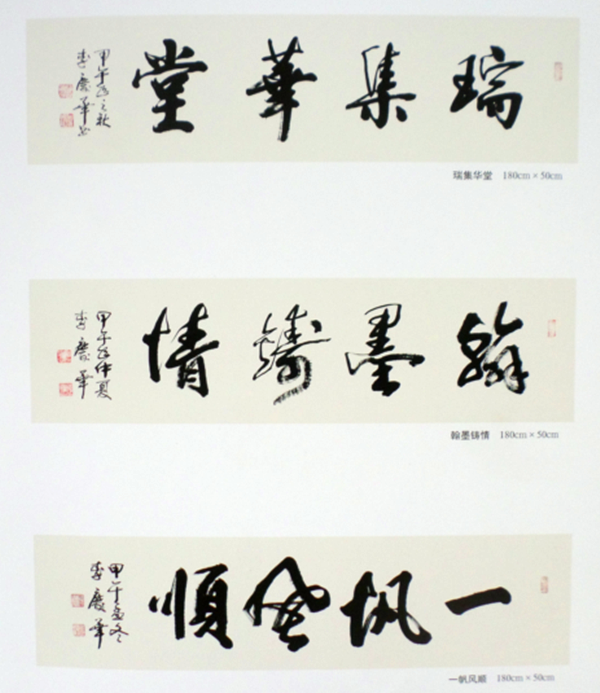 瑞集華堂
甲午年之秋
李慶華書
瑞集华堂 180cm×50cm
翰墨鑄情
甲午年仲夏
李慶華
翰墨铸情 180cm×50cm
一帆風順
甲午孟冬
李慶華
一帆风顺 180cm×50cm